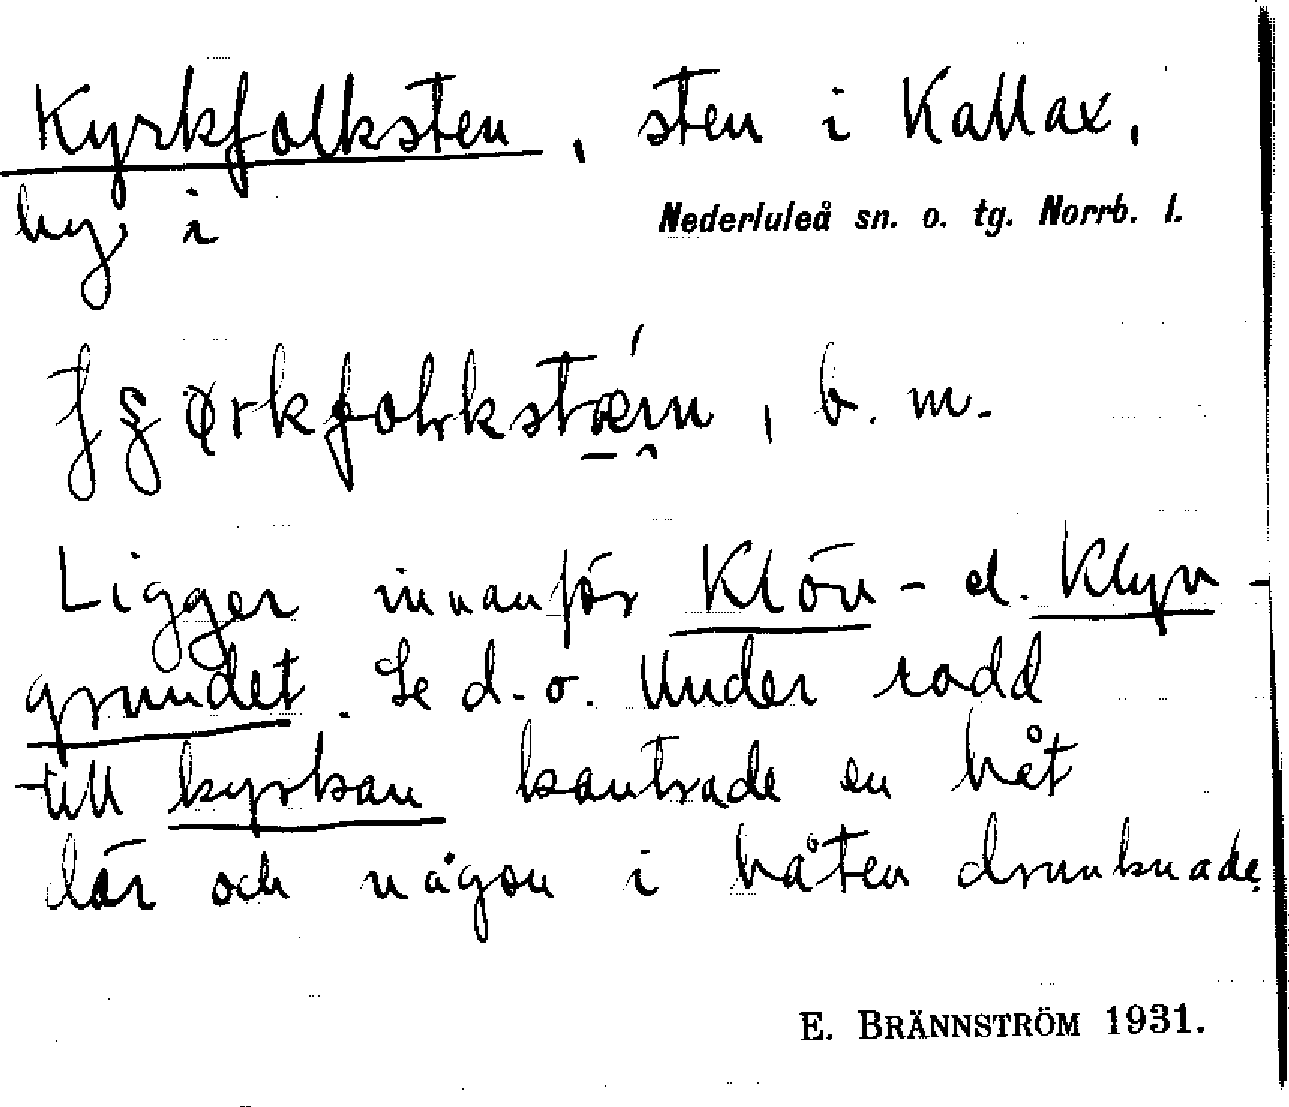 Kyrkfolksten, sten i Kallax,
by i Nederluleå sn. o. tg. Norrb. l.
b. m.
Ligger innanför Klön- el. Klyn-
grundet. Se d. o. Under rodd
till kyrkan kantrade en båt
där och någon i båten drunknade.
E. BRÄNNSTRÖM 1931.